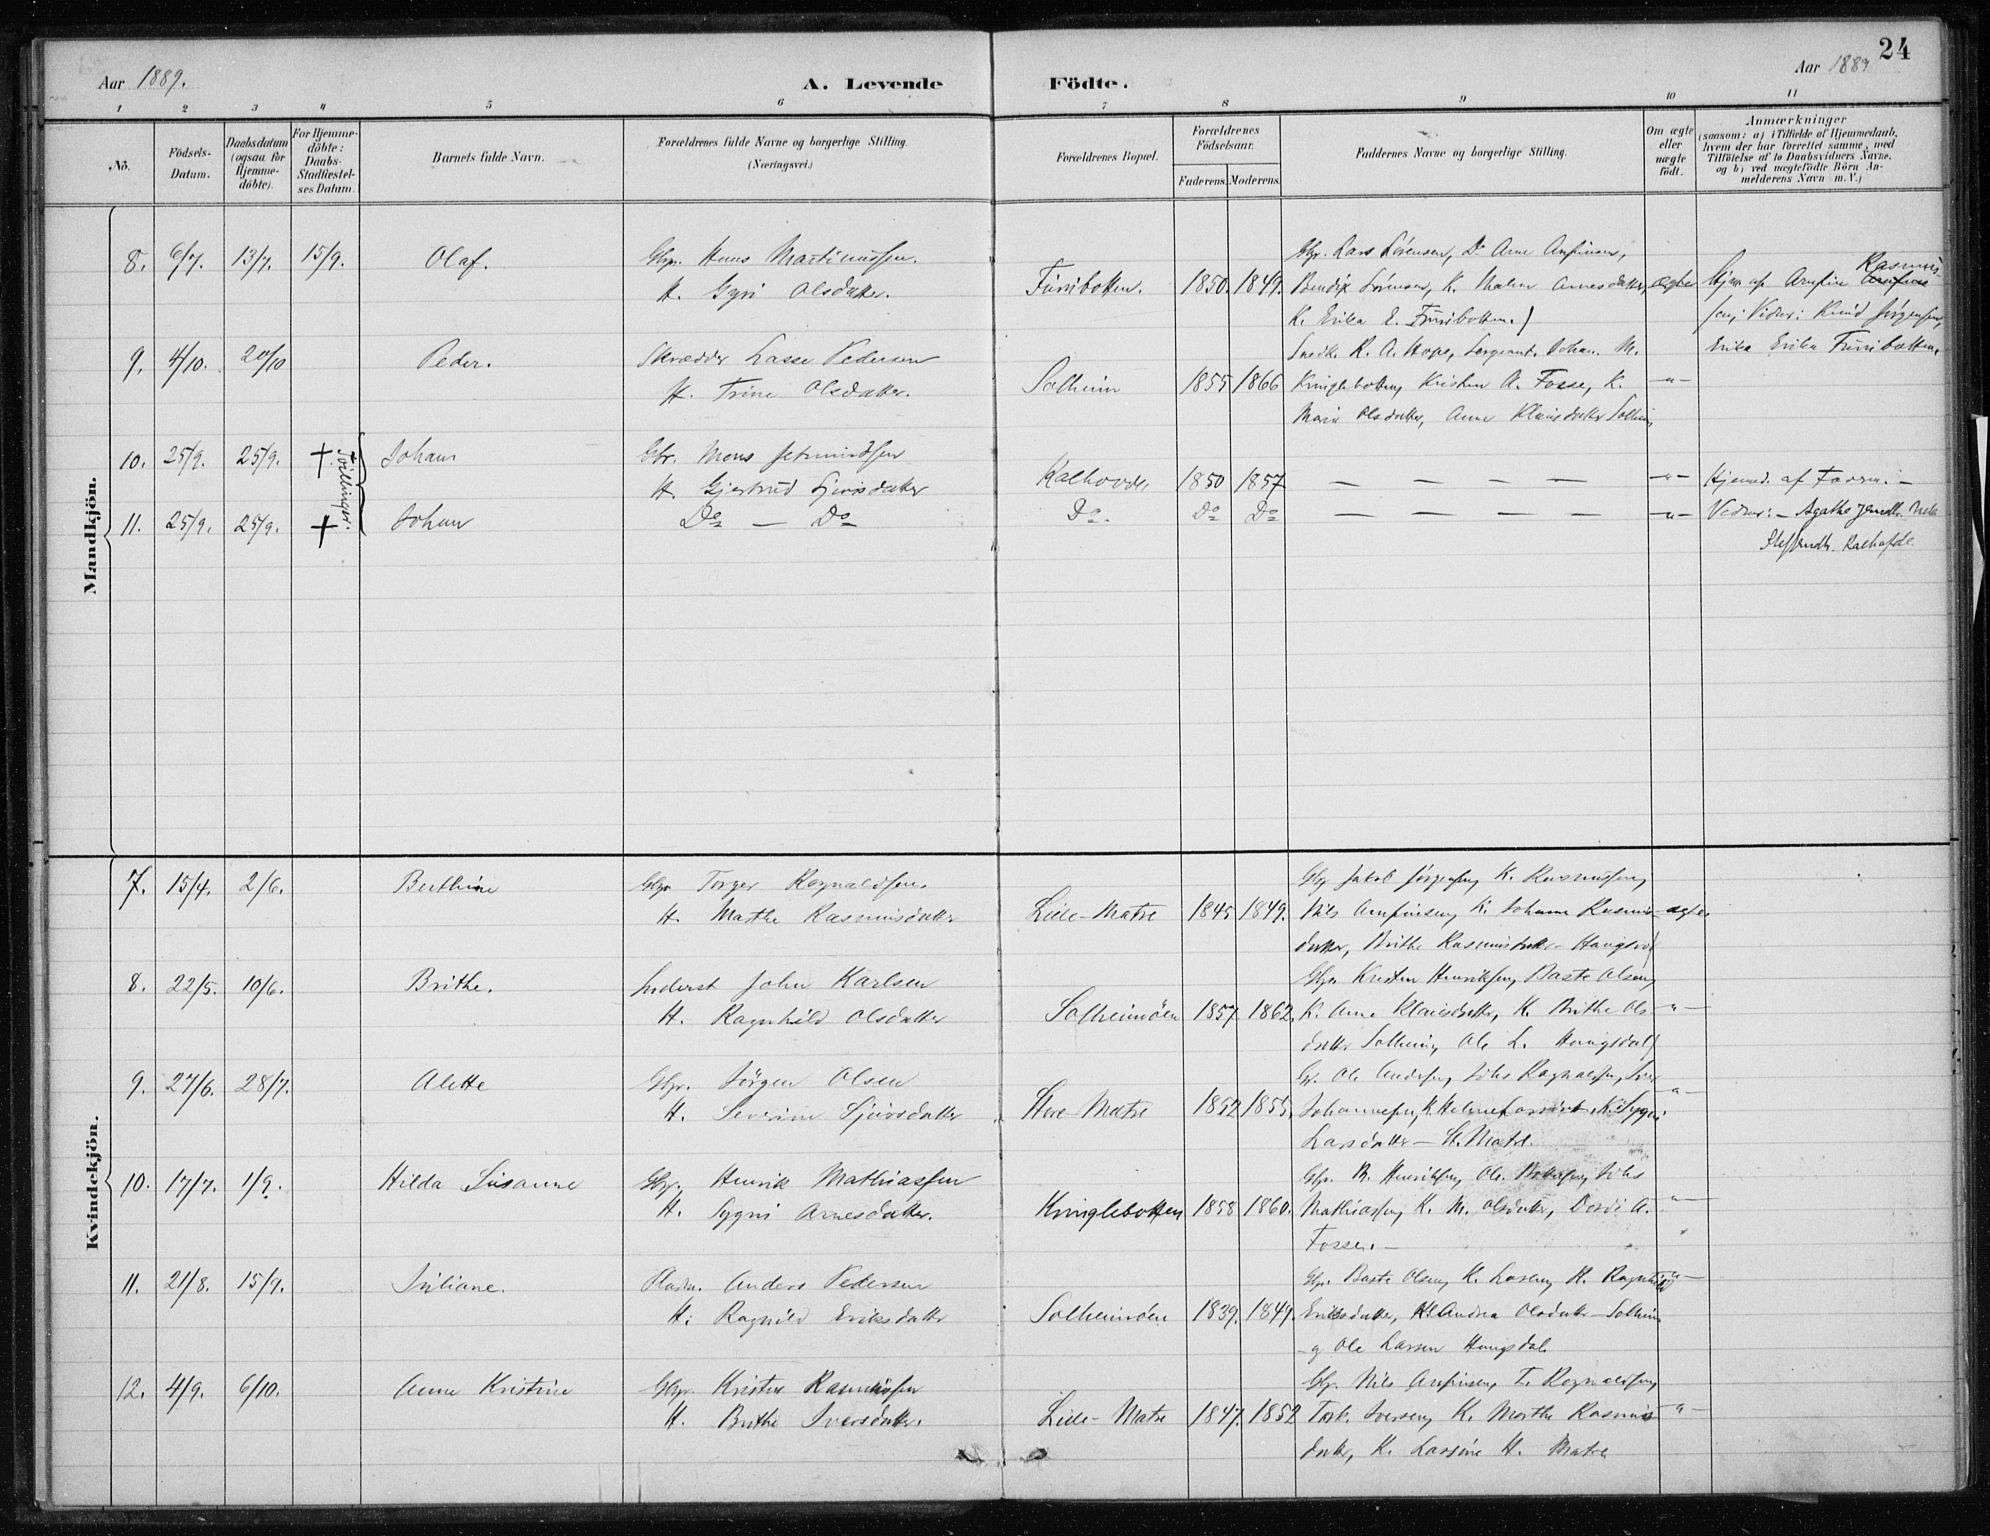 24
Aar 1889. A. Levende Födte. Aar 1889
1 2 3 4 5 6 7 8 9 10 11
No.
Födsels-
Datum.
Daabsdatum
(ogsaa for
Hjemme-
döbte).
For Hjemme-
döbte:
Daabs-
Stadfæstel-
ses Datum.
Barnets fulde Navn.
Forældrenes fulde Navne og borgerlige Stilling.
(Næringsvei.)
Forældrenes Bopæl.
Forældrenes
Födselsaar.
Faderens. Moderens.
Faddernes Navne og borgerlige Stilling.
Om ægte
eller
uægte
födt.
Anmærkninger
(saasom: a) i Tilfælde af Hjemmedaab,
hvem der har forrettet samme, med
Tilföielse af to Daabsvidners Navne,
og b) ved uægtefödte Börn An-
melderens Navn m. V.)
Mandkjön.
Gbr. Lars Sörensen, Do Arne Anfinsen,
8. 6/7. 13/7. 15/9. Olaf. Gbr. Hans Martinussen. Rasmus-
H. Gyri Olsdatter. Furebotten. 1850. 1849. Bendix Sörensen, K. Malene Arnesdatter, ægte Hjem. af Anfin
K. Erika E. Furebotten. sen; Vidner: Knud Jörgensen,
9. 4/10. 20/10 Peder. Skrædder Lasse Pedersen Snedk. R. A. Hope, Sergeant Johan M. Erika Furebotten.
H. Trine Olsdatter. Solheim 1855 1866 Kringlebotten, Kristen A. Fosse, K. -"-
Marie Olsdatter, Anne Klausdatter Solheim
10. 25/9. 25/9. † Tvillinger. Johan Gbr. Mons Jetmundsen
H. Gjertrud Sjursdatter Kalhovde 1850 1857 — — — — -"- Hjemd. af Faderen. —
11. 25/9. 25/9. † Johan Do — Do Do. Do Do — — — — -"- Vidner: — Agathe
Kalhovde.
Kvindekjön.
7. 15/4. 2/6. Berthine Gbr. Torger Ragnaldsen. Gbr. Jakob Jörgensen, K. Rasmussen,
H. Marthe Rasmusdatter Lide-Matre 1845 1849. Nils Anfinsen, K. Johanne Rasmus- ægte
datter, Brithe Rasmusdatter Haugsdal
8. 22/5. 10/6. Brithe. Inderst John Karlsen Gbr. Kristen Henriksen, Baste Olsen,
H. Ragnhild Olsdatter Solheimöen 1857. 1862. K. Anne Klausdatter, K. Brithe Ols- "-
datter Solheim, Ole L. Haugsdal
9. 27/6. 28/7. Alette Gbr. Jörgen Olsen Gbr. Ole Andersen, Johs Ragnaldsen, Iver
H. Severine Sjursdatter Store-Matre 1852 1855. Johannesen, K. Helene K. Sygni "-
Larsdatter — St. Matre.
10. 17/7. 1/9. Hilda Susanne Gbr. Henrik Mathiassen Gbr. B. Henriksen, Ole Johs
H. Sygni Arnesdatter. Kringlebotten 1858 1860. Mathiassen, K. M. Olsdatter, Dordi A. "-
Fosse. —
11. 21/8. 15/9. Juliane. Pladsm. Anders Pedersen Gbr. Baste Olsen, K. Larsen, K. Ragnhild "-
H. Ragnild Eriksdatter Solheimöen 1839. 1849. Eriksdatter, Andrea Olsdatter Solheim
og Ole Larsen Haugsdal
12. 4/9. 6/10. Anne Kristine Gbr. Kristen Rasmussen Gbr. Nils Anfinsen, T. Ragnaldsen,
H. Brithe Iversdatter. Lide-Matre 1847. 1852 Tork. Iversen, K. Marthe Rasmus- "-
datter, K. Larsine H. Matre